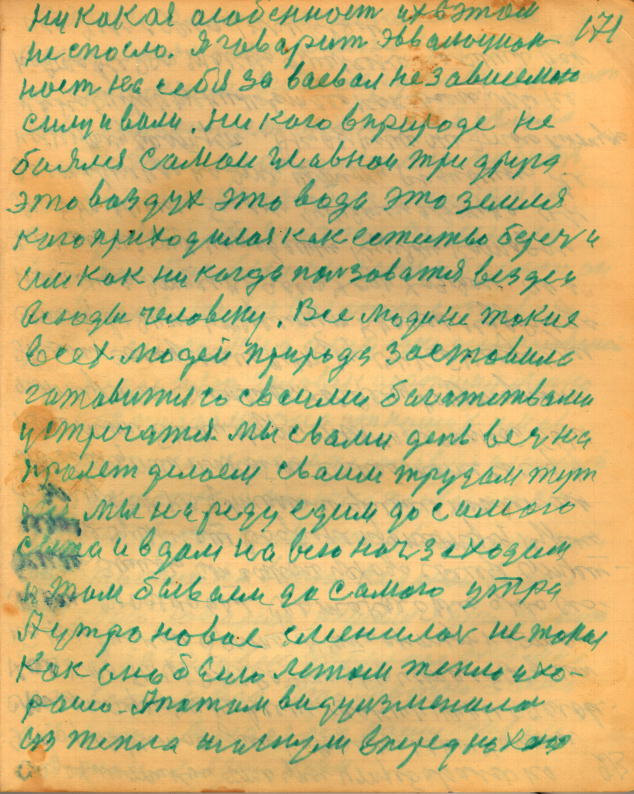 никокая особенност их в этом
171
неспосло. Я говарит эввалюцион
ност на себя завоевал независемою
силу и волю. Никого в природе не
боялся самои главнои три друга
это воздух это вода это земля
кого приходилося как естество береч и
им как никогда ползоватся везде и
всюды человеку. Все люди не такие
всех людей природа заставила
готовится со своими богатствами
устричатся. Мы с вами ден вечна
пролет делаем своим трудом тут
мы на ряду едим до самого
сна и в дом на всю ноч заходим
и там бываем до самого утра
А утро новое сменилос не такое
Как оно было летом тепло и хо-
рошо. А потом виду изменило
из тепла шагнули вперед на